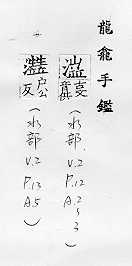 龍龕手鑑
(水部 V.2 P.12 A.2~3)
户公反 (水部 V.2 P.13 A.5)